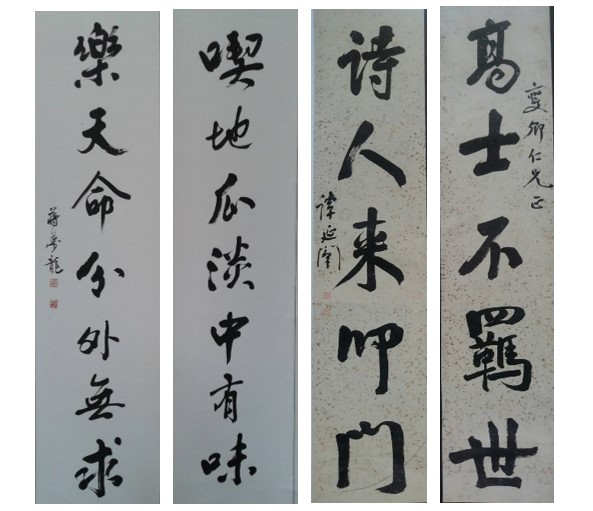 高士不羈世
卿仁兄正
詩人来叩門
譚延闓
喫地瓜淡中有味
樂天命分外無求
蔣夢龍